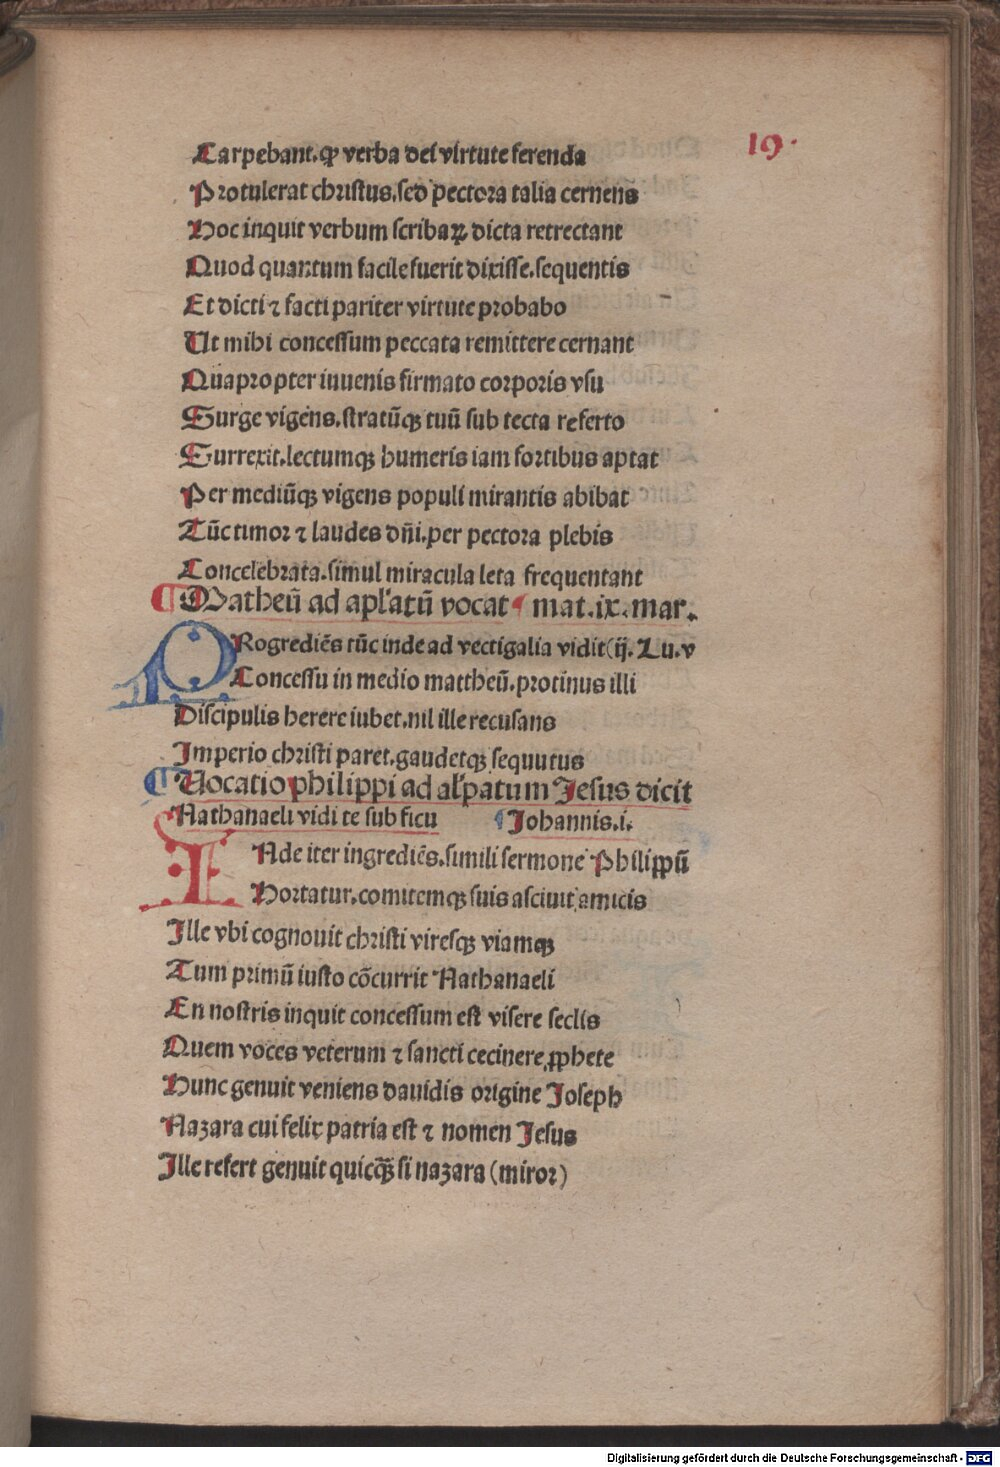 19.
Carpebant. ꝙ verba dei virtute ferenda
Protulerat christus. sed pectora talia cernens
Hoc inquit verbum scribaꝝ dicta retrectant
Quod quantum facile fuerit dixisse. sequentis
Et dicti ⁊ facti pariter virtute probabo
Ut mihi concessum peccata remittere cernant
Quapropter iuuenis firmato corporis vsu
Surge vigens. stratūqꝫ tuū sub tecta referto
Surrexit. lectumqꝫ humeris iam fortibus aptat
Per mediūqꝫ vigens populi mirantis abibat
Tūc timor ⁊ laudes dn̄i. per pectora plebis
Concelebrata. simul miracula leta frequentant
¶ Matheū ad apl'atū vocat ¶ mat. ix. mar.
PRogrediēs tūc inde ad vectigalia vidit (ij. Lu. v
Concessu in medio mattheū. protinus illi
Discipulis herere iubet. nil ille recusans
Imperio christi paret. gaudetqꝫ sequutus
¶ Uocatio philippi ad al'patum Jesus dicit
Nathanaeli vidi te sub ficu ¶ Johannis. i.
INde iter ingrediēs. simili sermone Philippū
Hortatur. comitemqꝫ suis asciuit amicis
Ille vbi cognouit christi viresqꝫ viamqꝫ
Tum primū iusto cōcurrit Nathanaeli
En nostris inquit concessum est visere seclis
Quem voces veterum ⁊ sancti cecinere ꝓphete
Hunc genuit veniens dauidis origine Joseph
Nazara cui felix patria est ⁊ nomen Jesus
Ille refert genuit quicꝙ̄ si nazara (miror)
Digitalisierung gefördert durch die Deutsche Forschungsgemeinschaft - DFG